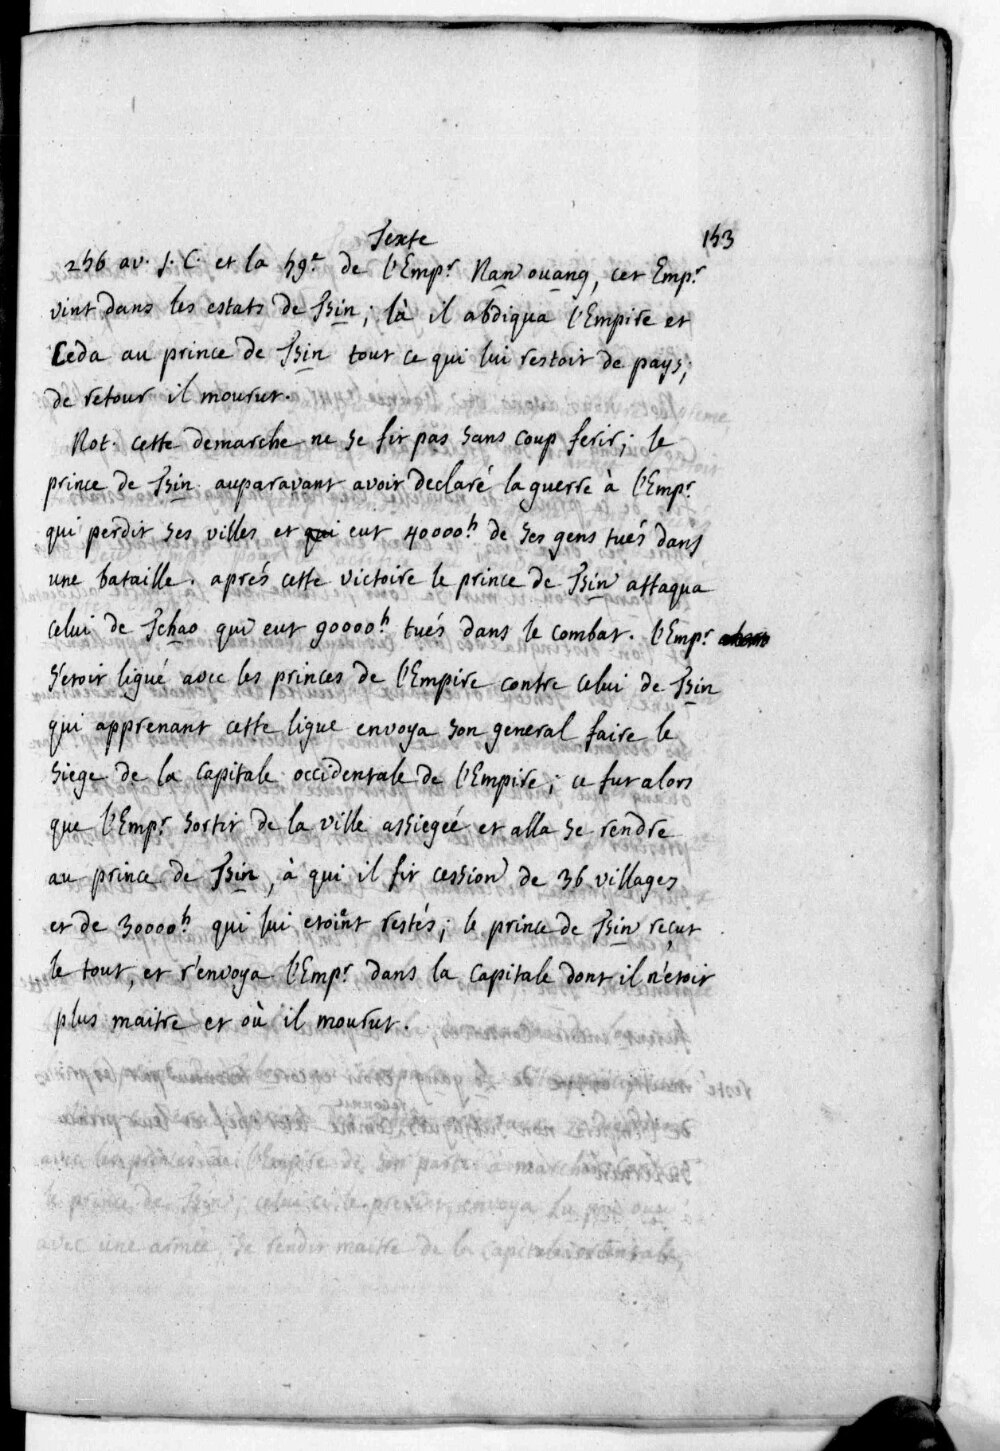 Texte
153
256 av. J. C. et la 59.e de l'Emp.r Nan ouang, cet Emp.r
vint dans les estats de Tsin; là il abdiqua l'Empire et
Ceda au prince de Tsin tout ce qui lui restoit de pays;
de retour il mourut.
Not. cette demarche ne se fit pas sans coup ferir; le
prince de Tsin auparavant avoit declaré la guerre à l'Emp.r
qui perdit ses villes et qui eut 40000.h de ses gens tués dans
une bataille. aprés cette victoire le prince de Tsin attaqua
celui de Tchao qui eut 90000.h tués dans le combat. l'Emp.r
s'etoit ligué avec les princes de l'Empire contre celui de Tsin
qui apprenant cette ligue envoya son general faire le
siege de la capitale occidentale de l'Empire; ce fut alors
que l'Emp.r sortit de la ville assiegeé et alla se rendre
au prince de Tsin, à qui il fit cession de 36 villages
et de 30000.h qui lui etoient restés; le prince de Tsin reçut
le tout, et r'envoya l'Emp.r dans la capitale dont il n'etoit
plus maitre et où il mourut.
avec les princes de l'Empire de son parti à marché
le prince de Tsin; celui ci le prevint, envoya
avec une armée, se rendit maitre de la capitale occidentale,